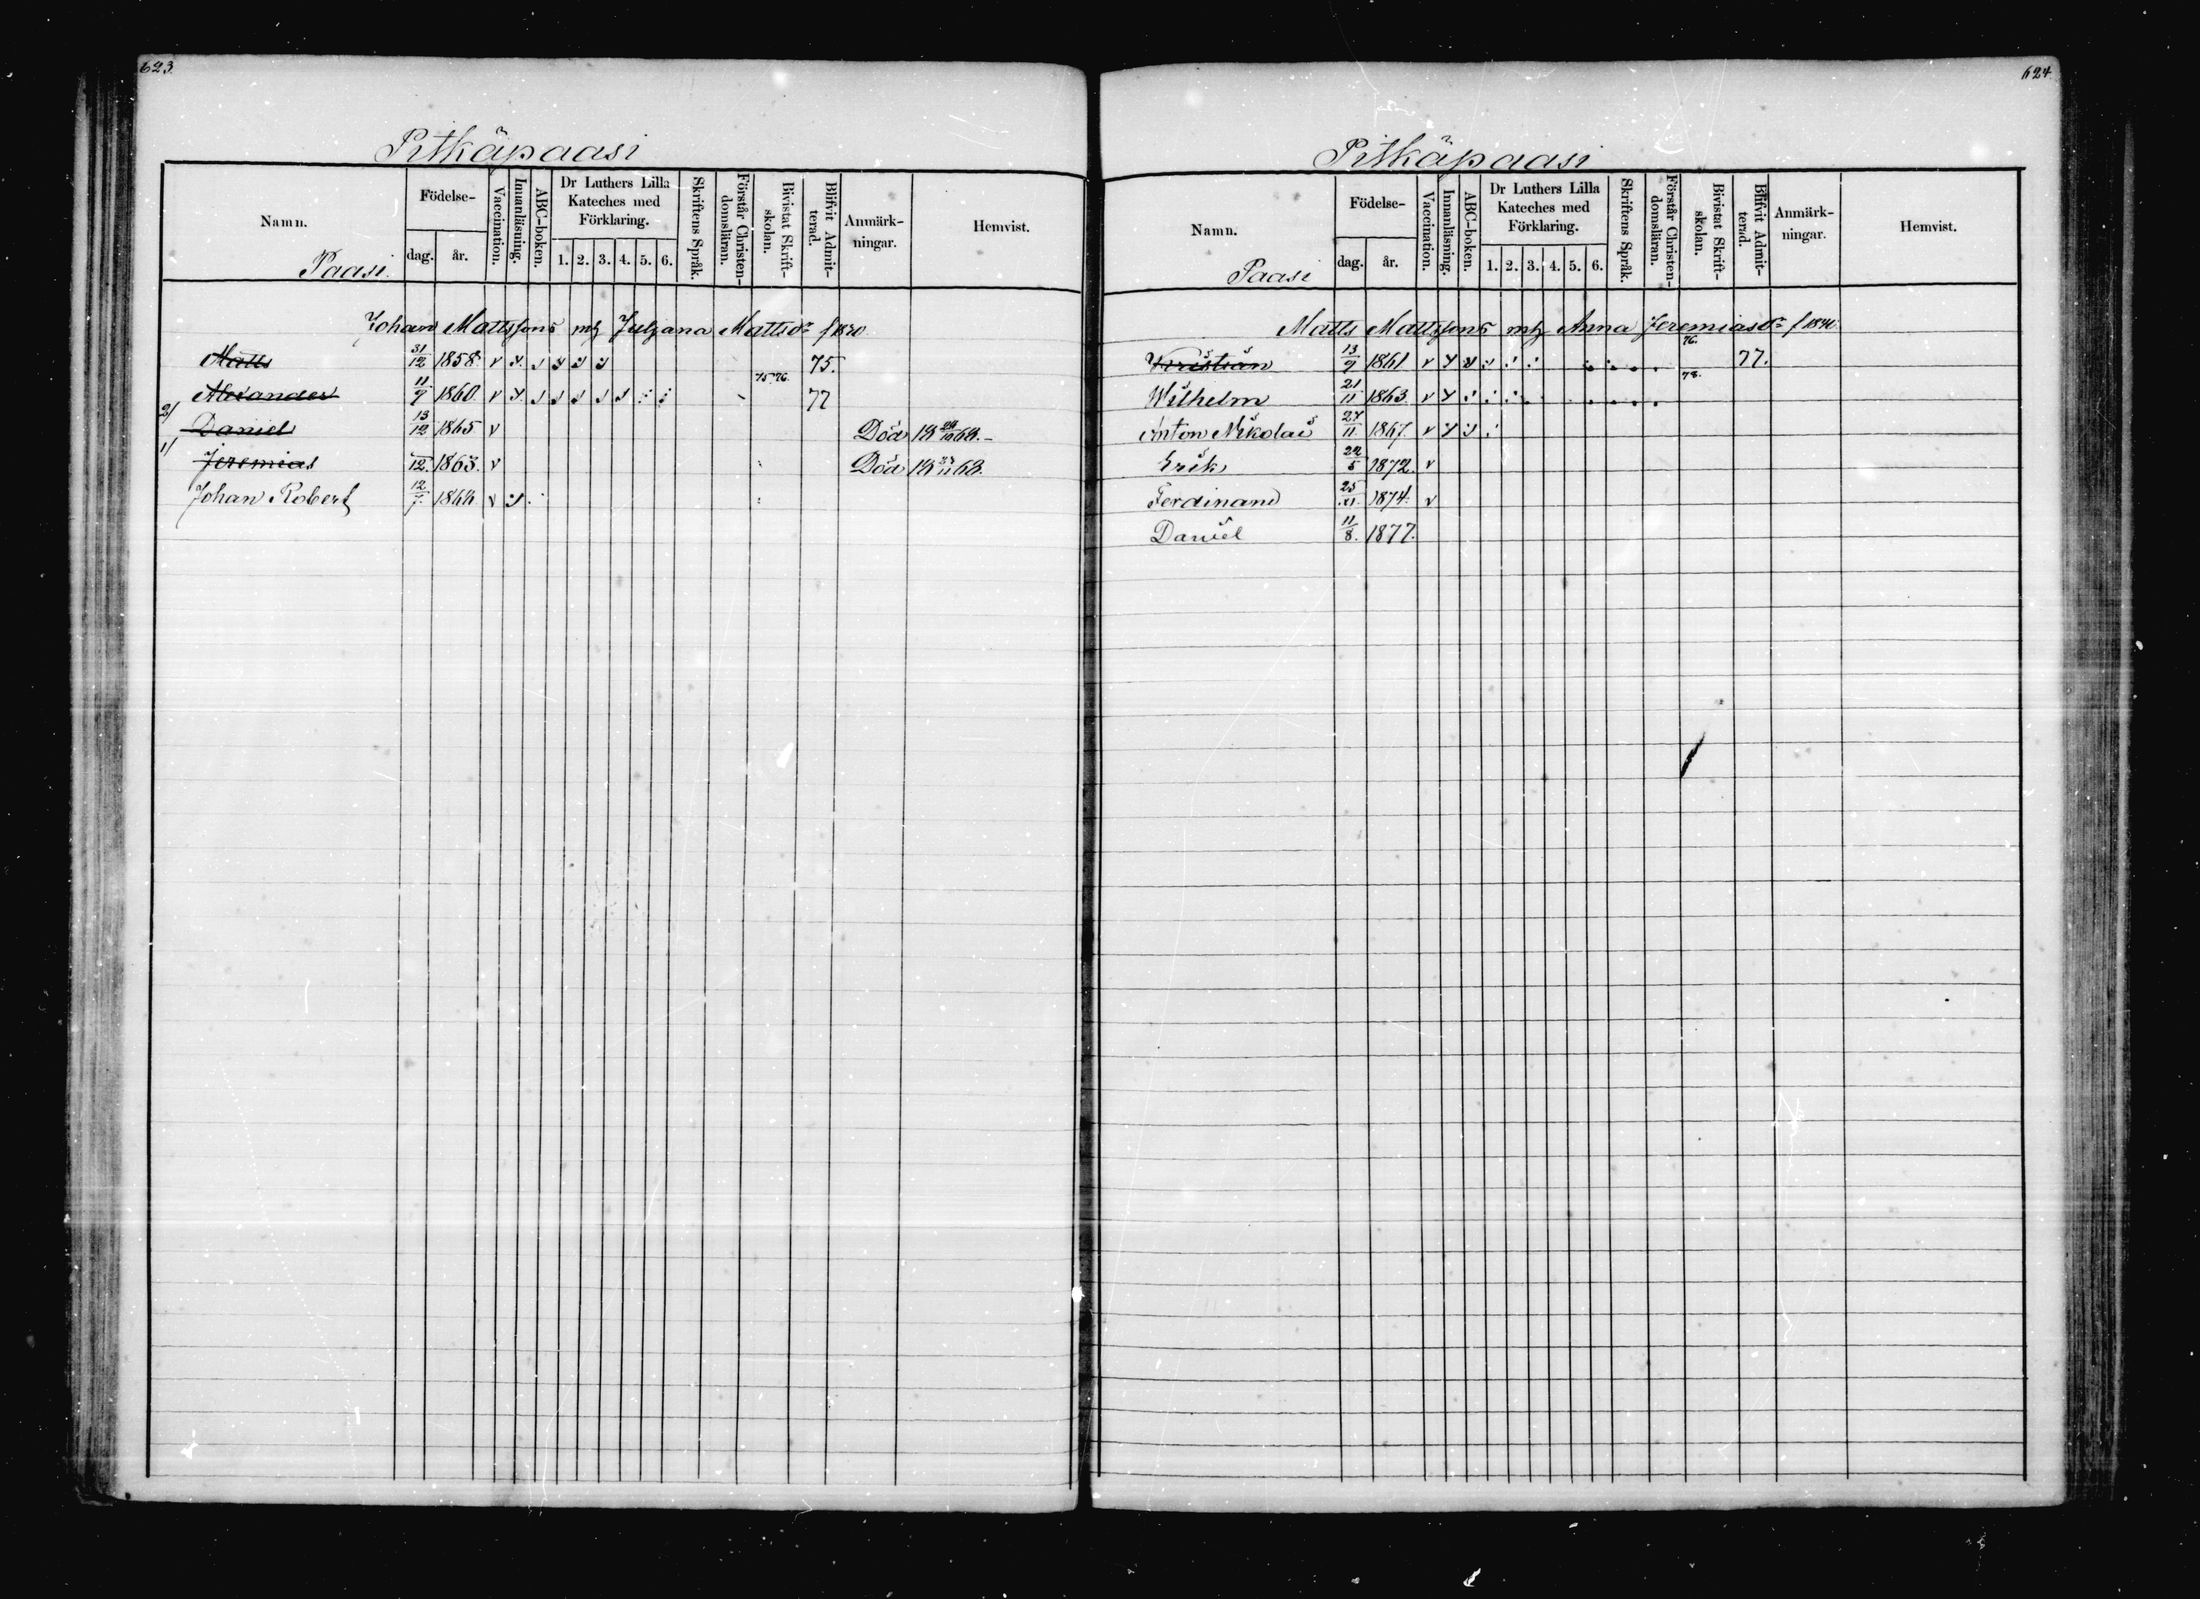 623.
Pitkäpaasi
Namn.
Paasi.
Födelse-
dag.
år.
Vaccination.
Innanläsning.
ABC-boken.
Dr Luthers Lilla
Kateches med
Förklaring.
1. 2. 3. 4. 5. 6.
Skriftens Språk.
Förstår Christen-
domsläran.
Bivistat Skrift-
skolan.
Blifvit Admit-
terad.
Anmärk-
ningar.
Hemvist.
Johan Mattssons mh Juljana Mattsdr
Matts 31/12 1858. v 75.
Alexander 11/9 1860. v 75. 76. 77
2/ Daniel 13/12 1865 v Död 18 68.
1/ Jeremias 12. 1863. v Död 18 68.
Johan Robert 12/7. v
624.
Pitkäpaasi
Namn.
Paasi
Födelse-
dag.
år.
Vaccination.
Innanläsning.
ABC-boken.
Dr Luthers Lilla
Kateches med
Förklaring.
1. 2. 3. 4. 5. 6.
Skriftens Språk.
Förstår Christen-
domsläran.
Bivistat Skrift-
skolan.
Blifvit Admit-
terad.
Anmärk-
ningar.
Hemvist.
Matts Mattssons mh Anna Jeremiasdr
Kristian 13/9 1861 v 76. 77.
Wilhelm 21/11 1863. v 78.
Anton Nikolai 27/11 1867. v
Erik 22/5 1872. v
Ferdinand 25/XI. 1874. v
Daniel 11/8. 1877.